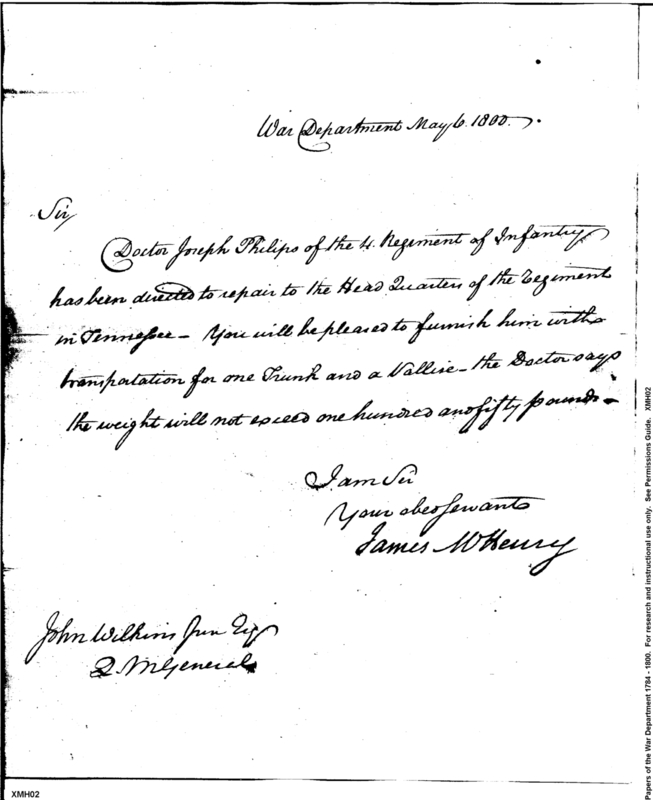 War Department May 6. 1800.
Sir
Doctor Joseph Philips of the 4. Regiment of Infantry
has been directed to repair to the Head Quarters of the Regiment
in Tennessee - You will be pleased to furnish him with
transportation for one Trunk and a Vallise - the Doctor says
the weight will not exceed one hundred and fifty pounds -
I am Sir
Your obed servant
James McHenry
John Wilkins Jun Esq
Q M General
XMH02
Papers of the War Department 1784 - 1800. For research and instructional use only. See Permissions Guide. XMH02